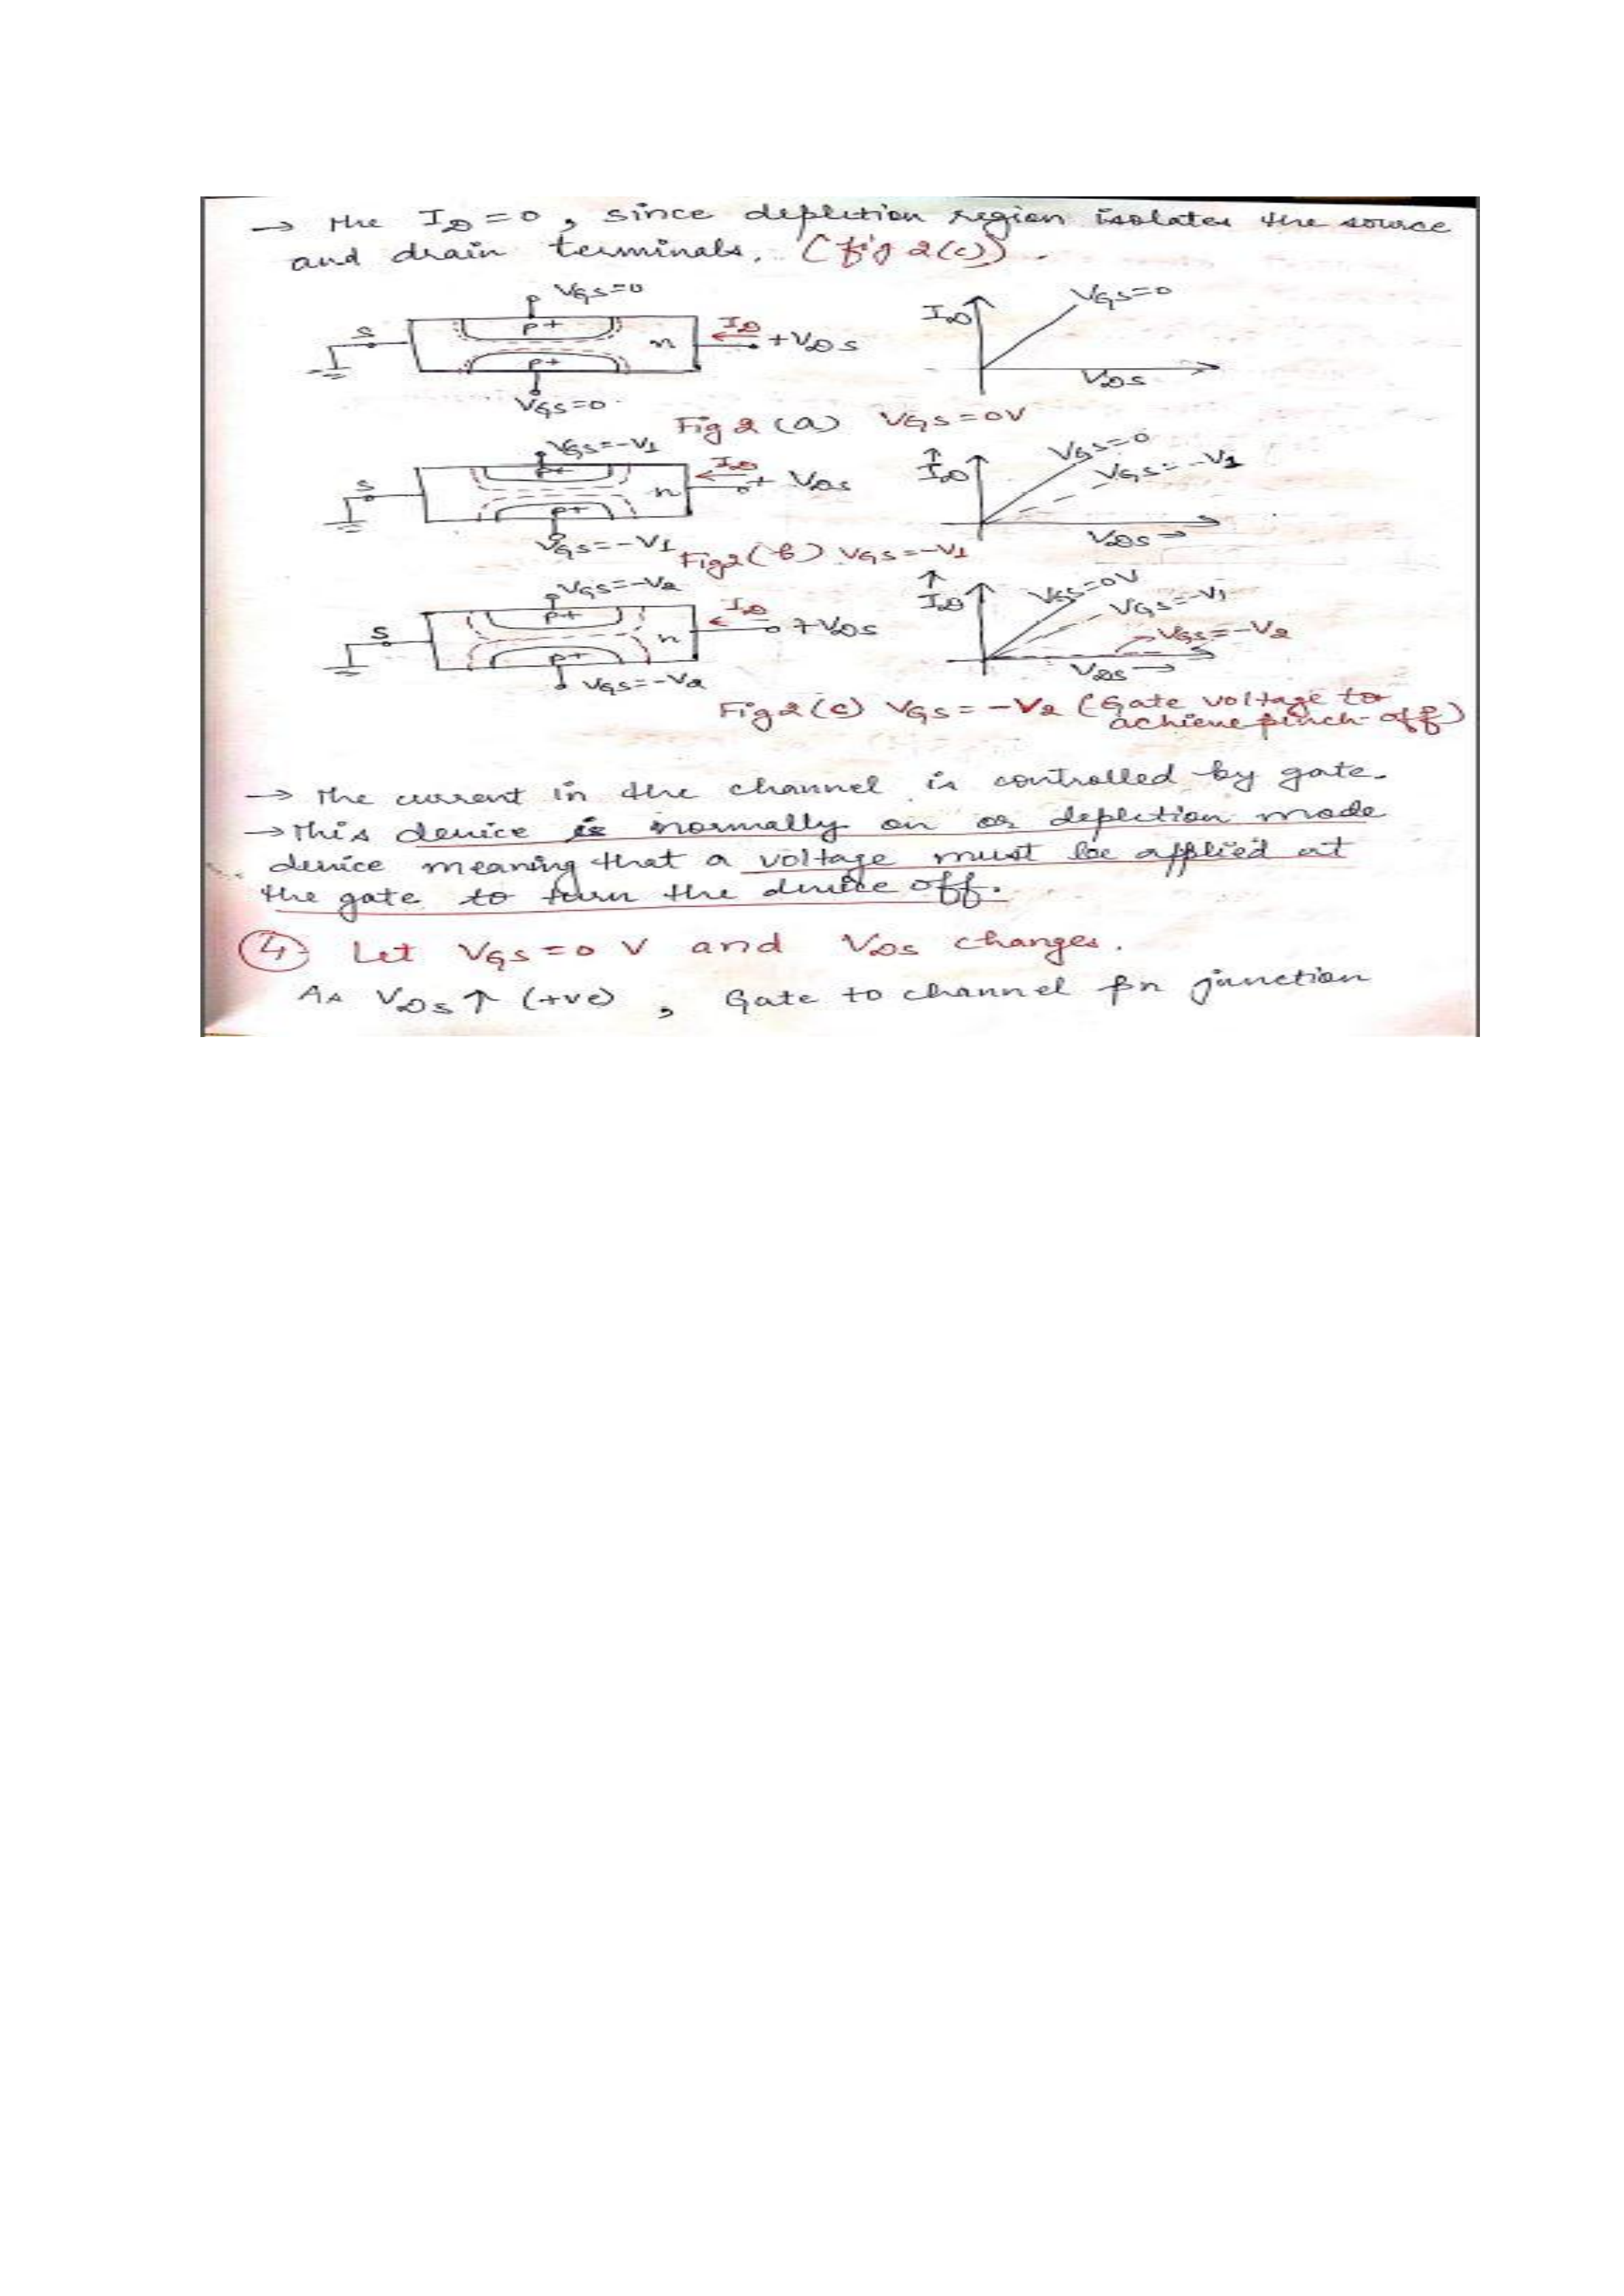 → the I_D = 0, since depletion region isolates the source
and drain terminals. (fig 2(c)).
V_GS=0
p+
S
n
I_D
+V_DS
p+
V_GS=0
I_D
V_GS=0
V_DS
Fig 2 (a) V_GS=0V
V_GS=-V1
p+
S
n
I_D
+ V_DS
p+
V_GS=-V1
↑
I_D
V_GS=0
V_GS=-V1
V_DS→
Fig 2 (b) V_GS=-V1
V_GS=-V2
p+
S
n
I_D
+V_DS
p+
V_GS=-V2
↑
I_D
V_GS=0V
V_GS=-V1
V_GS=-V2
V_DS→
Fig 2 (c) V_GS = -V2 (Gate voltage to
achieve pinch-off)
→ the current in the channel is controlled by gate.
→ This device is normally on or depletion mode
device meaning that a voltage must be applied at
the gate to turn the device off.
④ Let V_GS = 0 V and V_DS changes.
As V_DS ↑ (+ve), Gate to channel pn junction